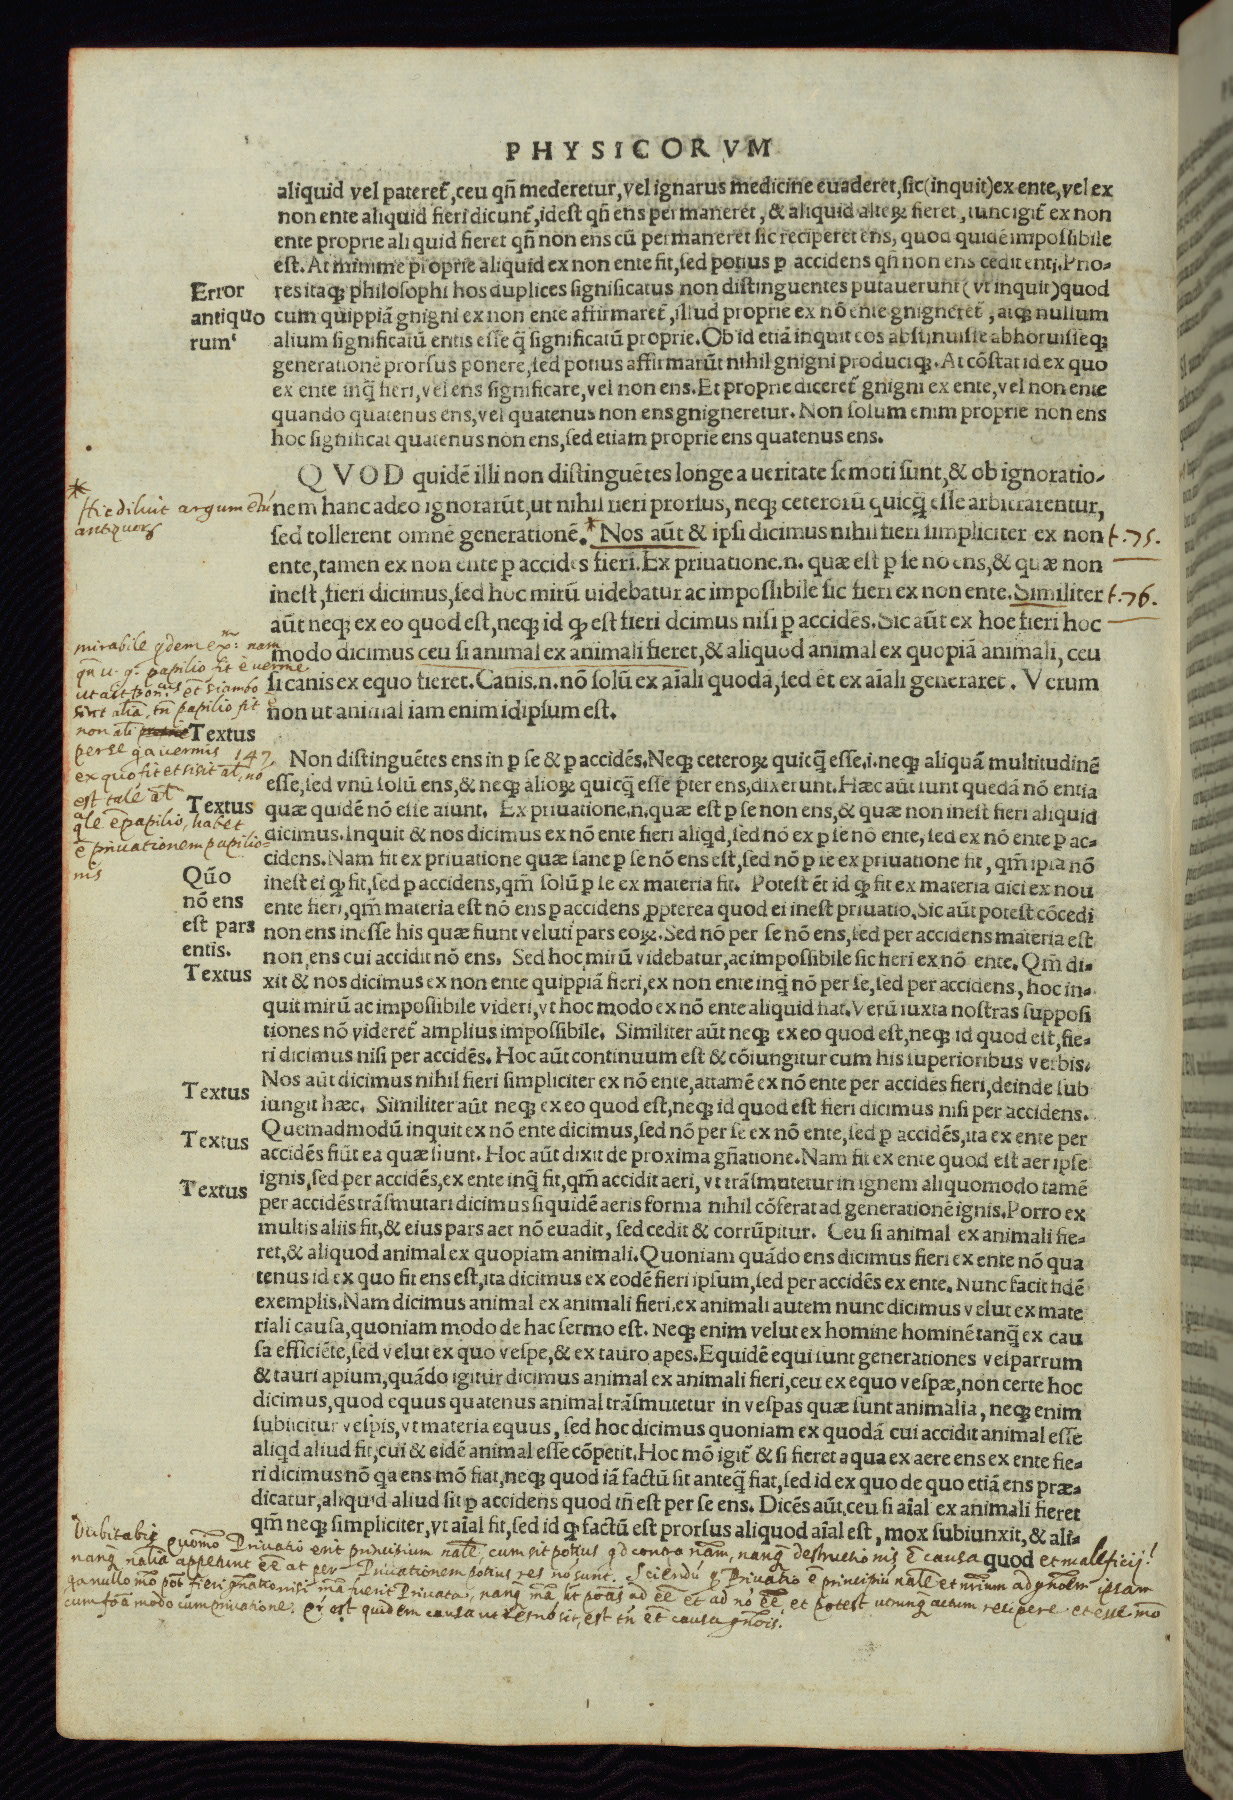 PHYSICORVM
aliquid vel pateret̃, ceu qñ mederetur, vel ignarus medicine euaderet, sic (inquit) ex ente, vel ex
non ente aliquid fieri dicunt̃, idest qñ ens permaneret, & aliquid alteꝝ fieret, tunc igit̃ ex non
ente proprie aliquid fieret qñ non ens cũ permaneret sic reciperet ens, quod quidẽ impossibile
est. At minime proprie aliquid ex non ente fit, sed potius ꝑ accidens qñ non ens cedit enti. Prio-
Error
antiquo
rum
res itaqꝫ philosophi hos duplices significatus non distinguentes putauerunt (vt inquit) quod
cum quippiã gnigni ex non ente affirmaret̃, illud proprie ex nõ ente gnigneret̃, atqꝫ nullum
alium significatũ entis esse q̃ significatũ proprie. Ob id etiã inquit eos abstinuisse abhoruisseqꝫ
generationẽ prorsus ponere, sed potius affirmarũt nihil gnigni produciqꝫ. At cõstat id ex quo
ex ente inq̃ fieri, vel ens significare, vel non ens. Et proprie diceret̃ gnigni ex ente, vel non ente
quando quatenus ens, vel quatenus non ens gnigneretur. Non solum enim proprie non ens
hoc significat quatenus non ens, sed etiam proprie ens quatenus ens.
QVOD quidẽ illi non distinguẽtes longe a ueritate semoti sunt, & ob ignoratio-
* Hic diluit argumẽtũ
antiquoꝝ
nem hanc adeo ignorarũt, ut nihil fieri prorsus, neqꝫ ceterorũ quicq̃ esse arbitrarentur,
sed tollerent omnẽ generationẽ. * Nos aũt & ipsi dicimus nihil fieri simpliciter ex non t. 75.
ente, tamen ex non ente ꝑ accidẽs fieri. Ex priuatione.n. quæ est ꝑ se nõ ens, & quæ non
inest, fieri dicimus, sed hoc mirũ uidebatur ac impossibile sic fieri ex non ente. Similiter t. 76.
aũt neqꝫ ex eo quod est, neqꝫ id qđ est fieri dcimus nisi ꝑ accidẽs. Sic aũt ex hoe fieri hoc
modo dicimus ceu si animal ex animali fieret, & aliquod animal ex quopiã animali, ceu
si canis ex equo fieret. Canis.n. nõ solũ ex aĩali quodã, sed et ex aĩali generaret. Verum
non ut animal iam enim idipsum est.
mirabile qdem exm: nam
papilio fit ẽ verme
non
Textus
perse qa vermis 147.
ex quo fit et sisit al, nõ
est talẽ al
qle ẽ papilio, habet
ẽ priuationem papilio-
nis
Non distinguẽtes ens in ꝑ se & ꝑ accidẽs. Neqꝫ ceteroꝝ quicq̃ esse.i. neqꝫ aliquã multitudinẽ
esse, sed vnũ solũ ens, & neqꝫ alioꝝ quicq̃ esse pter ens, dixerunt. Hæc aũt sunt quedã nõ entia
Textus
quæ quidẽ nõ esse aiunt. Ex priuatione.n. quæ est ꝑ se non ens, & quæ non inest fieri aliquid
dicimus. Inquit & nos dicimus ex nõ ente fieri aliqd, sed nõ ex ꝑ se nõ ente, sed ex nõ ente ꝑ ac-
cidens. Nam fit ex priuatione quæ sane ꝑ se nõ ens est, sed nõ ꝑ se ex priuatione fit, qm̃ ipsa nõ
Quõ
nõ ens
est pars
entis.
inest ei qđ fit, sed ꝑ accidens, qm̃ solũ ꝑ se ex materia fit. Potest ẽt id qđ fit ex materia dici ex nou
ente fieri, qm̃ materia est nõ ens ꝑ accidens ꝓpterea quod ei inest priuatio. Sic aũt potest cõcedi
non ens inesse his quæ fiunt veluti pars eoꝝ. Sed nõ per se nõ ens, sed per accidens materia est
non ens cui accidit nõ ens. Sed hoc mirũ videbatur, ac impossibile sic fieri ex nõ ente. Qm̃ di-
Textus
xit & nos dicimus ex non ente quippiã fieri, ex non ente inq̃ nõ per se, sed per accidens, hoc in-
quit mirũ ac impossibile videri, vt hoc modo ex nõ ente aliquid fiat. Verũ iuxta nostras supposi
tiones nõ videret̃ amplius impossibile. Similiter aũt neqꝫ ex eo quod est, neqꝫ id quod est, fie-
ri dicimus nisi per accidẽs. Hoc aũt continuum est & cõiungitur cum his superioribus verbis.
Textus
Nos aũt dicimus nihil fieri simpliciter ex nõ ente, attamẽ ex nõ ente per accidẽs fieri, deinde sub
iungit hæc. Similiter aũt neqꝫ ex eo quod est, neqꝫ id quod est fieri dicimus nisi per accidens.
Textus
Quemadmodũ inquit ex nõ ente dicimus, sed nõ per se ex nõ ente, sed ꝑ accidẽs, ita ex ente per
accidẽs fiũt ea quæ fiunt. Hoc aũt dixit de proxima gñatione. Nam fit ex ente quod est aer ipse
Textus
ignis, sed per accidẽs, ex ente inq̃ fit, qm̃ accidit aeri, vt trãsmutetur in ignem aliquomodo tamẽ
per accidẽs trãsmutari dicimus siquidẽ aeris forma nihil cõferat ad generationẽ ignis. Porro ex
multis aliis fit, & eius pars aer nõ euadit, sed cedit & corrũpitur. Ceu si animal ex animali fie-
ret, & aliquod animal ex quopiam animali. Quoniam quãdo ens dicimus fieri ex ente nõ qua
tenus id ex quo fit ens est, ita dicimus ex eodẽ fieri ipsum, sed per accidẽs ex ente. Nunc facit fidẽ
exemplis. Nam dicimus animal ex animali fieri, ex animali autem nunc dicimus velut ex mate
riali causa, quoniam modo de hac sermo est. Neqꝫ enim velut ex homine hominẽ tanq̃ ex cau
sa efficiẽte, sed velut ex quo vespe, & ex tauro apes. Equidẽ equi sunt generationes vesparrum
& tauri apium, quãdo igitur dicimus animal ex animali fieri, ceu ex equo vespæ, non certe hoc
dicimus, quod equus quatenus animal trãsmutetur in vespas quæ sunt animalia, neqꝫ enim
subiicitur vespis, vt materia equus, sed hoc dicimus quoniam ex quodã cui accidit animal esse
aliqd aliud fit, cui & eidẽ animal esse cõpetit. Hoc mõ igit̃ & si fieret aqua ex aere ens ex ente fie-
ri dicimus nõ qa ens mõ fiat, neqꝫ quod iã factũ sit anteq̃ fiat, sed id ex quo de quo etiã ens præ-
dicatur, aliquid aliud sit ꝑ accidens quod tñ est per se ens. Dicẽs aũt, ceu si aĩal ex animali fieret
qm̃ neqꝫ simpliciter, vt aĩal fit, sed id qđ factũ est prorsus aliquod aĩal est, mox subiunxit, & ali-
quod
Dubitabis quomõ Priuatio erit principium nãle, cum sit potius qd contra nãm, nanq̃ destructionis ẽ causa et maleficij!
nanq̃ nãlia appetunt ẽe at per Priuationem potius res nõ sunt. Sciendũ q Priuatio ẽ principiũ nãle et ad gñoẽm ipsam
qa nullo mõ põt fieri gñatio nisi mã fuerit Priuata, nanq̃ mã ad ẽe et ad nõ ẽe et potest utrunq̃ actum recipere et esse mõ
cum fõa modo cum priuatione. est quidem causa ut res nõ sit, est tñ et causa gñois.